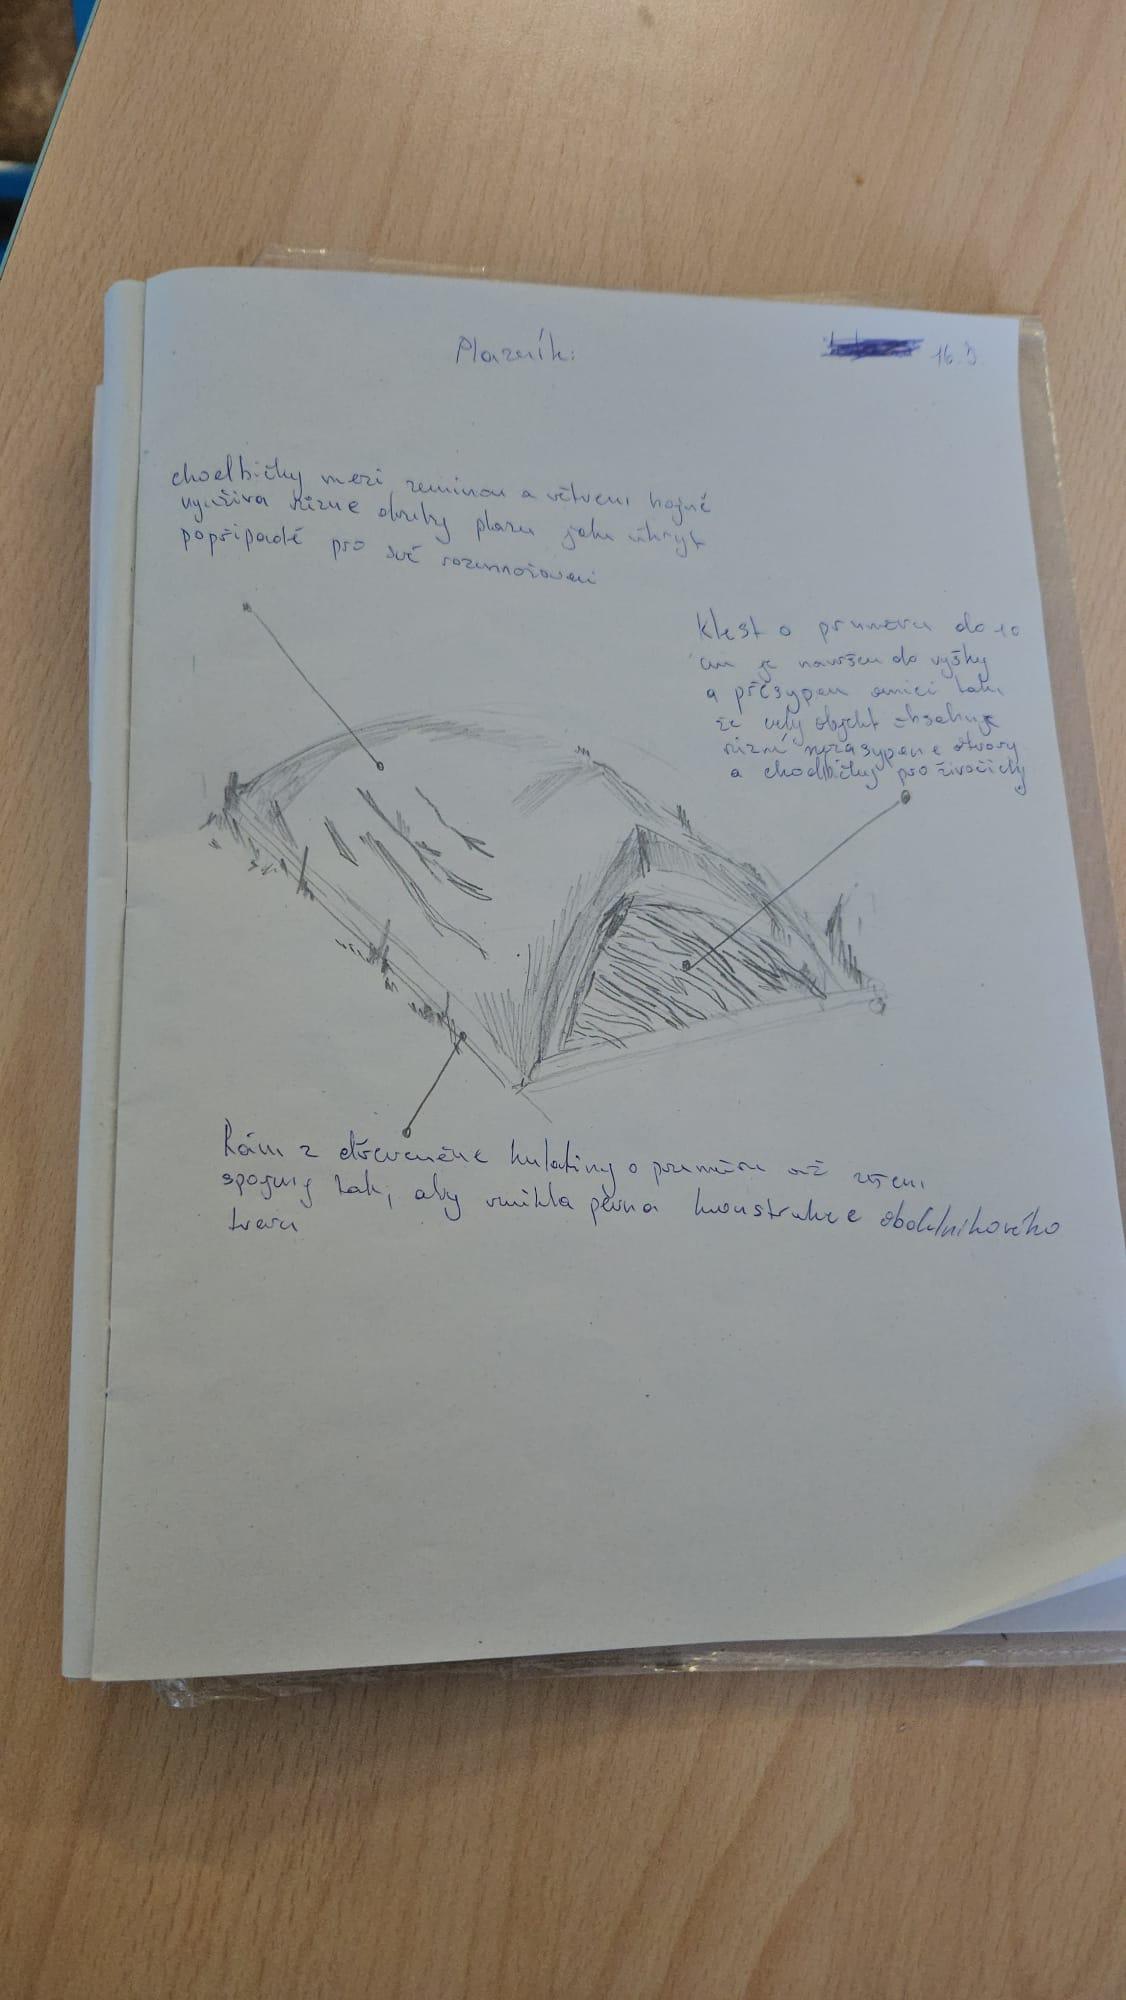 Plazník:
16.
chodbičky mezi zeminou a větvemi hojně
využívá různe druhy plazu jako úkryt
popřípadě pro své rozmnožování
Klest o prumeru do 10
cm je navršen do vyšky
a přesypen ornicí tak,
že celý objekt obsahuje
různí nezasypane otvory
a chodbičky pro živočichy
Rám z dřeveněne kulatiny o prumeru
spojený tak, aby vznikla pevna konstrukce obdelnikového
tvaru